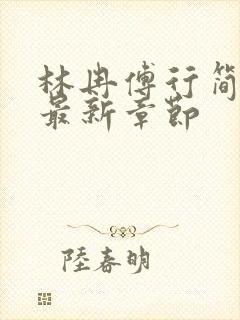 林冉傅行简
最新章节
陸春明